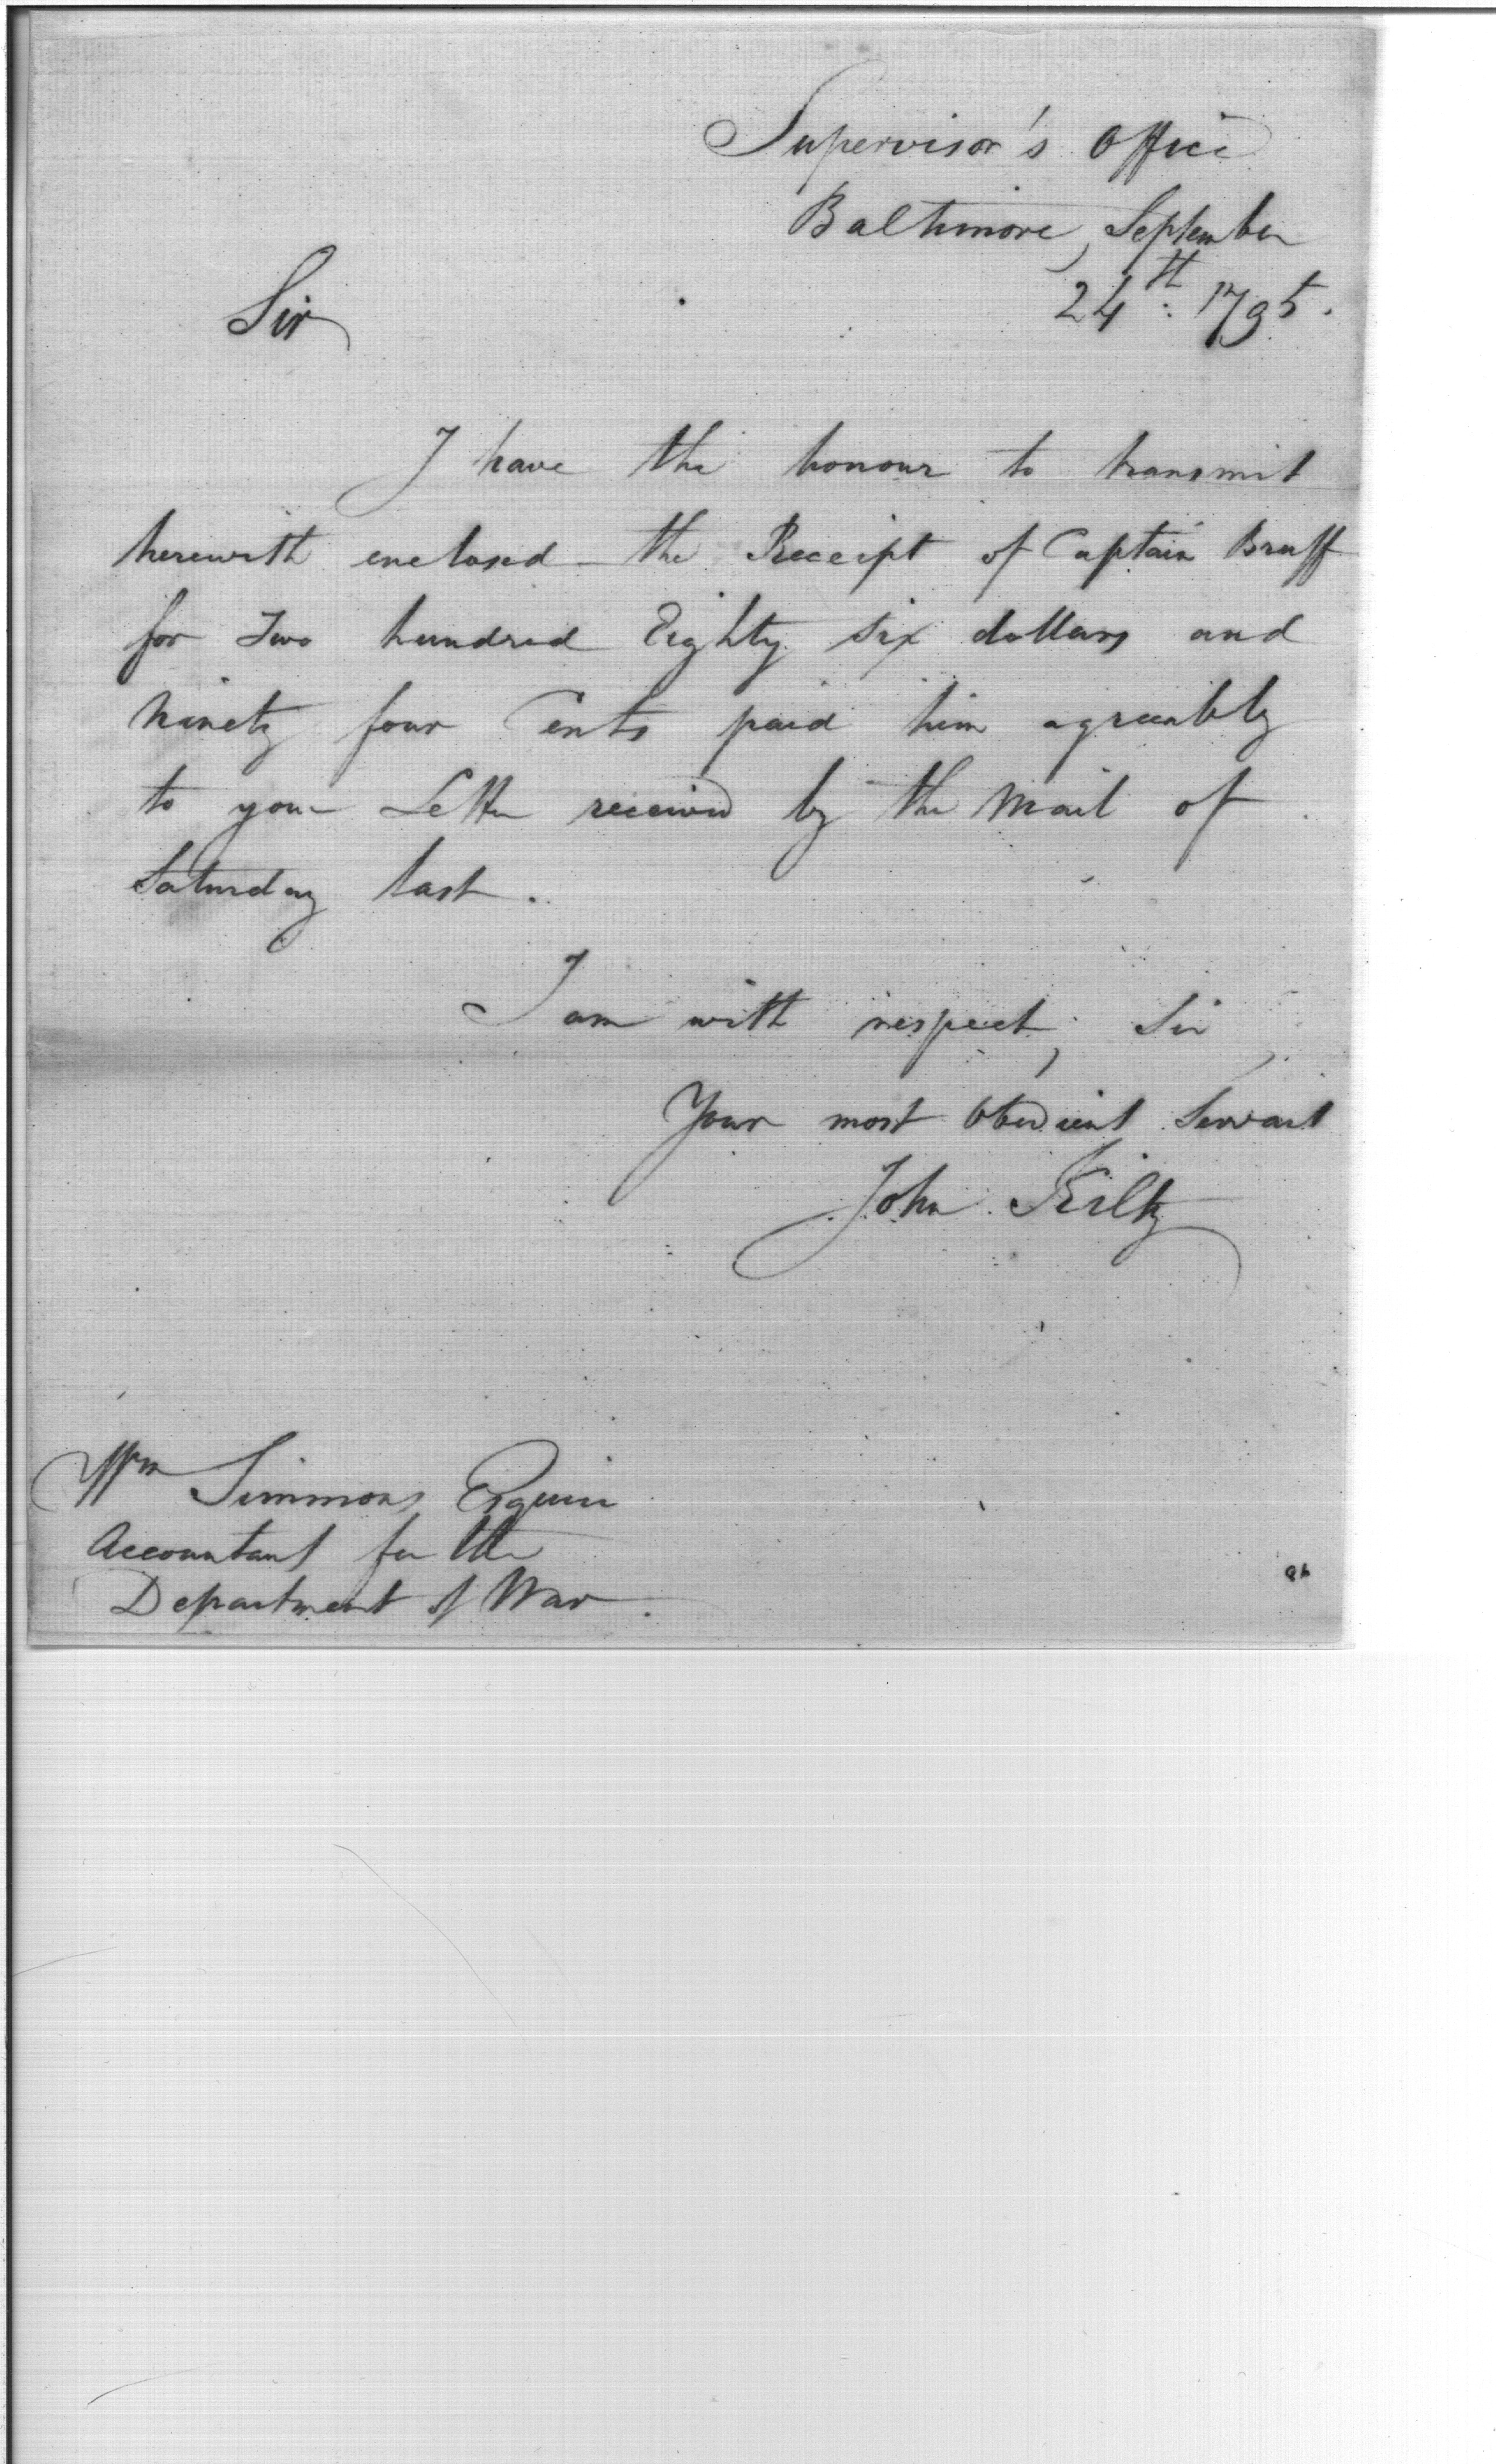 Supervisor's Office
Baltimore, September
24th: 1795.
Sir
I have the honour to transmit
herewith enclosed the Receipt of Captain Bruff
for Two hundred Eighty six dollars and
Ninety four Cents paid him agreeably
to your Letter received by the Mail of
Saturday last.
I am with respect, Sir,
Your most Obedient Servant
John Kilty
Wm Simmons Esquire
Accountant for the
Department of War.